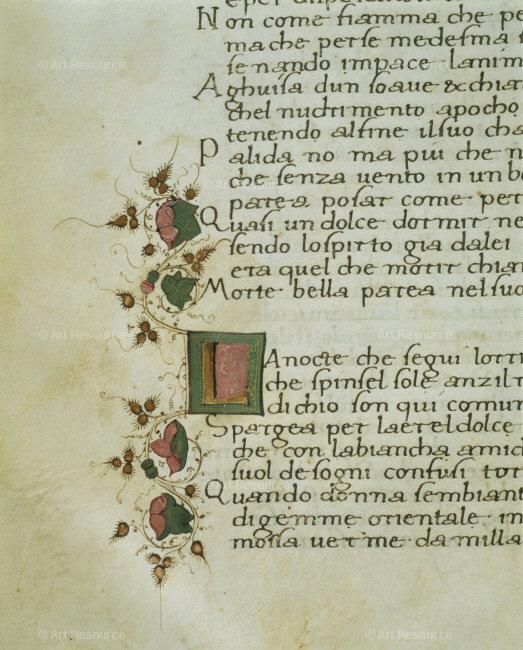 Non come fiamma che pe
ma che per se medesma s
se nando impace lanim
Aghuisa dun soaue & chia
chel nudrimento apocho
tenendo alfine ilsuo cha
Palida no ma piu che n
che senza uento in un be
parea posar come per
Quasi un dolce dormir ne
sendo lospirto gia dalei
era quel che morir chia
Morte bella parea nelsuo
LA nocte che segui lorri
che spinsel sole anzil t
dichio son qui comun
Spargea per laereldolce
che con labiancha amic
suol desogni confusi tor
Quando donna sembiant
digemme orientale in
mossa uer me da milla
© Art Resource